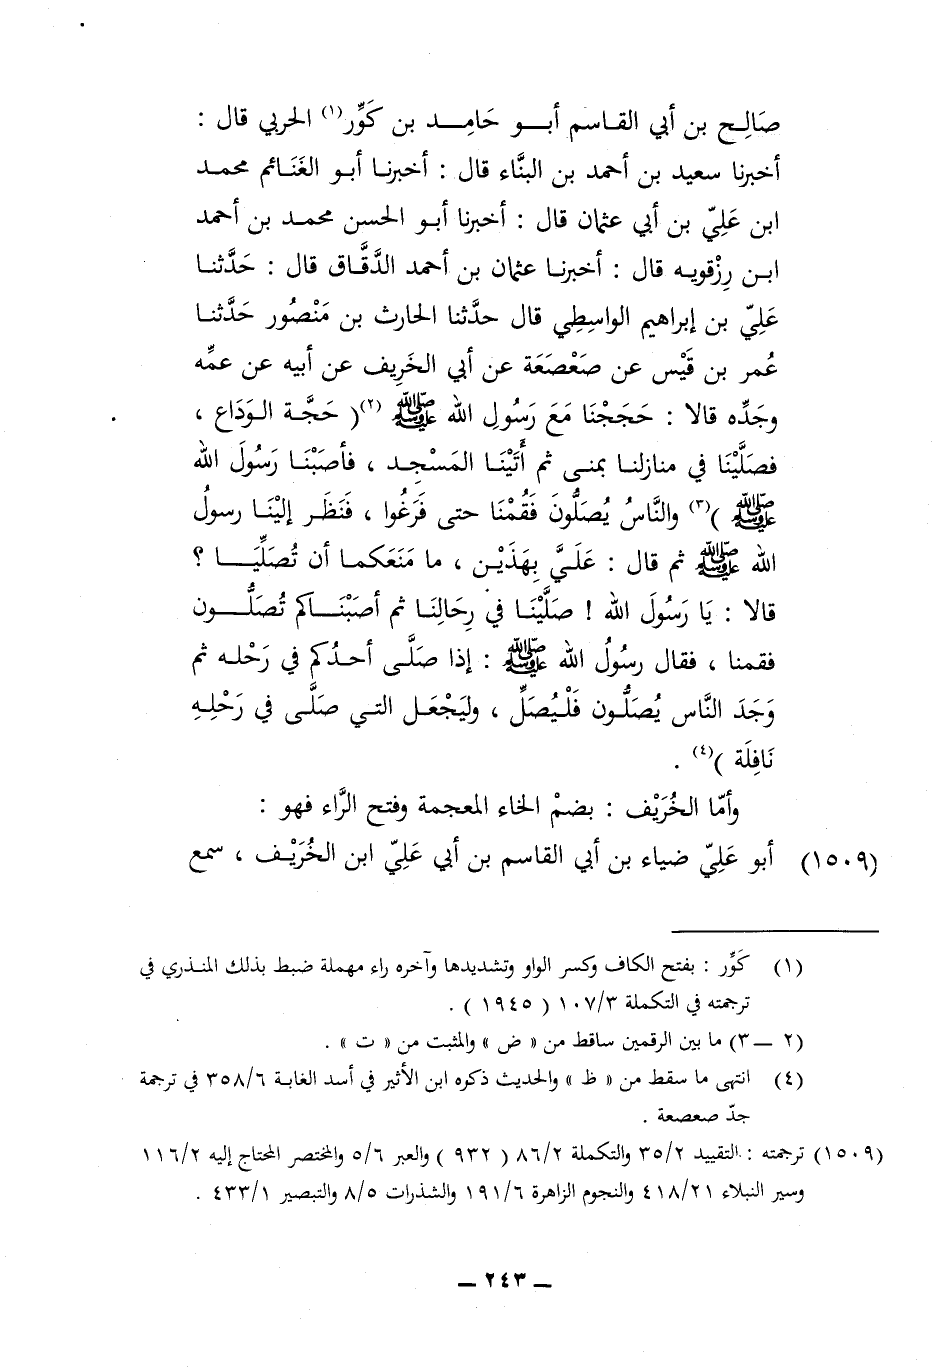 صَالِح بن أبي القـاسم أبــو حَامِــد بن كَوِّر(١) الحربي قال :
أخبرنا سعيد بن أحمد بن البنَّاء قال : أخبرنـا أبـو الغَنَـائم محمـد
ابن عَلِيّ بن أبي عثمان قال : أخبرنا أبـو الحسن محمـد بن أحمد
ابـن رِزْقويـه قال : أخبرنـا عثمان بن أحمد الدَّقَّاق قال : حَدَّثنـا
عَلِيّ بن إبراهيم الواسِطِي قال حدَّثنا الحارث بن مَنْصُور حَدَّثنـا
عُمر بن قَيْس عن صَعْصَعَة عن أبي الخَرِيف عن أبيه عن عمِّه
وجَدِّه قالا : حَجَجْنَا مَعَ رَسُولِ الله ﷺ (٢)( حَجَّـة الـوَدَاع ،
فصَلَّيْنَا في منازلنـا بمنـى ثم أَتَيْنَـا المَسْجِـد ، فأصَبْنَـا رَسُولَ الله
ﷺ )(٣) والنَّاسُ يُصَلُّونَ فَقُمْنَا حتى فَرَغُوا ، فَنَظَـر إليْنَـا رسولُ
الله ﷺ ثم قال : عَلَيَّ بِهَذَيْـن ، ما مَنَعَكمـا أن تُصَلِّيَـــا ؟
قالا : يَا رَسُولَ الله ! صَلَّيْنَـا في رِحَالِنَـا ثم أصَبْنَـــاكم تُصَلُّـــون
فقمنا ، فقال رسُولُ الله ﷺ : إذا صَلَّـى أحـدُكم في رَحْلـه ثم
وَجَدَ النَّاس يُصَلُّون فَلْيُصَلِّ ، وليَجْعَـل التـي صَلَّـى في رَحْلِـهِ
نَافِلَة )(٤) .
وأمّا الخُرَيْف : بضمْ الخاء المعجمة وفتح الرَّاء فهو :
(١٥٠٩) أبو عَلِيّ ضياء بن أبي القاسم بن أبي عَلِيّ ابن الخُرَيْـف ، سمع
(١) كَوِّر : بفتح الكاف وكسر الواو وتشديدها وآخره راء مهملة ضبط بذلك المنـذري في
ترجمته في التكملة ١٠٧/٣ ( ١٩٤٥ ) .
(٢ ــ ٣) ما بين الرقمين ساقط من « ض » والمثبت من « ت » .
(٤) انتهى ما سقط من « ظ » والحديث ذكره ابن الأثير في أسد الغابة ٣٥٨/٦ في ترجمة
جدّ صعصعة .
(١٥٠٩) ترجمته : التقييد ٣٥/٢ والتكملة ٨٦/٢ ( ٩٣٢ ) والعبر ٥/٦ والمختصر المحتاج إليه ١١٦/٢
وسير النبلاء ٤١٨/٢١ والنجوم الزاهرة ١٩١/٦ والشذرات ٨/٥ والتبصير ٤٣٣/١ .
ــ ٢٤٣ ــ